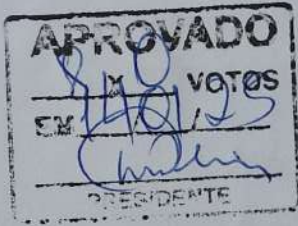 APROVADO
8 X 0 VOTOS
EM / /25
PRESIDENTE